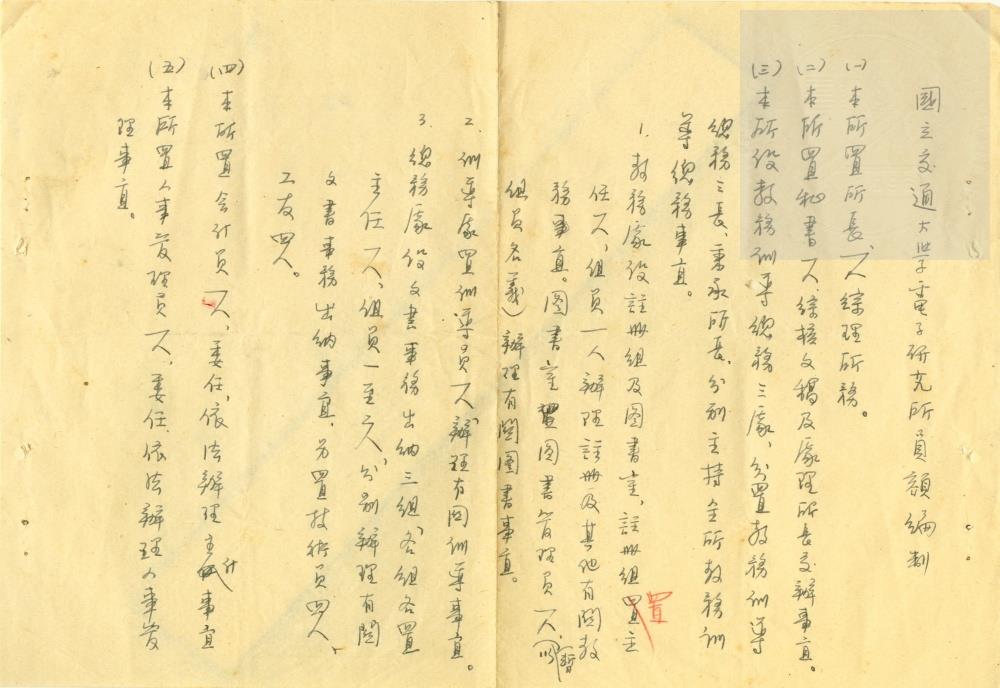 國立交通大學電子研究所員額編制
(一)本所置所長一人綜理所務。
(二)本所置秘書一人,綜核文稿及處理所長交辦事宜。
(三)本所設教務訓導總務三處,分置教務訓導
總務三長,秉承所長,分別主持全所教務訓
導總務事宜。
1. 教務處設註冊組及圖書室,註冊組置主
任一人,組員一人辦理註冊及其他有關教
務事宜。圖書室置圖書管理員一人,(暫以
組員名義)辦理有關圖書事宜。
2. 訓導處置訓導員一人,辦理有関訓導事宜。
3. 總務處設文書事務出納三組,各組各置
主任一人,組員一至二人,分別辦理有關
文書事務出納事宜,另置技術員四人、
工友四人。
(四)本所置會計員一人,委任,依法辦理主計事宜
(五)本所置人事管理員一人,委任,依法辦理人事管
理事宜。
置